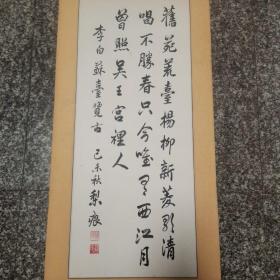 舊苑荒臺楊柳新菱歌清
唱不勝春只今唯見西江月
曾照吳王宮裡人
李白蘇臺覽古 己未秋梨痕